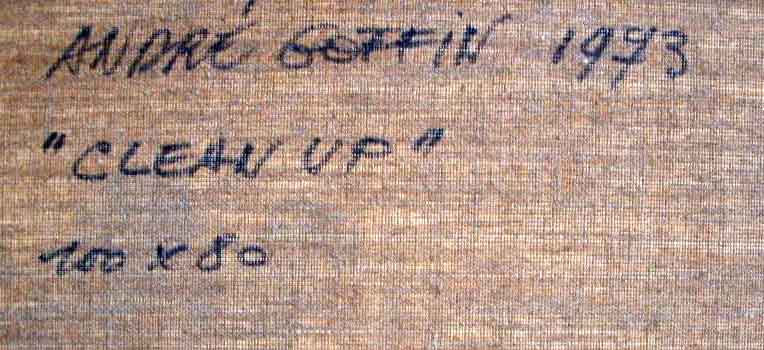 ANDRÉ GOFFIN 1973
"CLEAN UP"
100 x 80